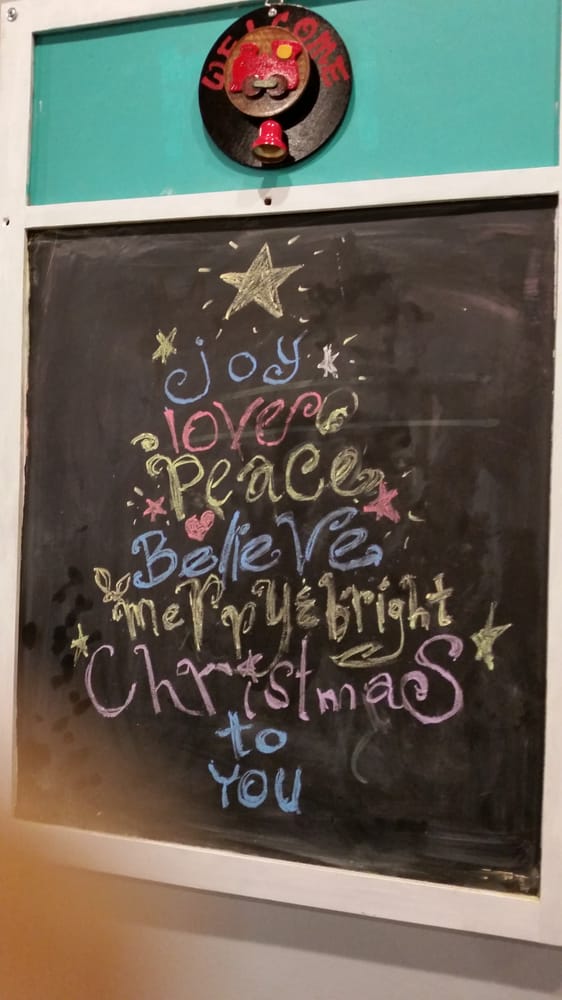 WELCOME
joy
love
Peace
Believe
merry & bright
Christmas
to
YOU